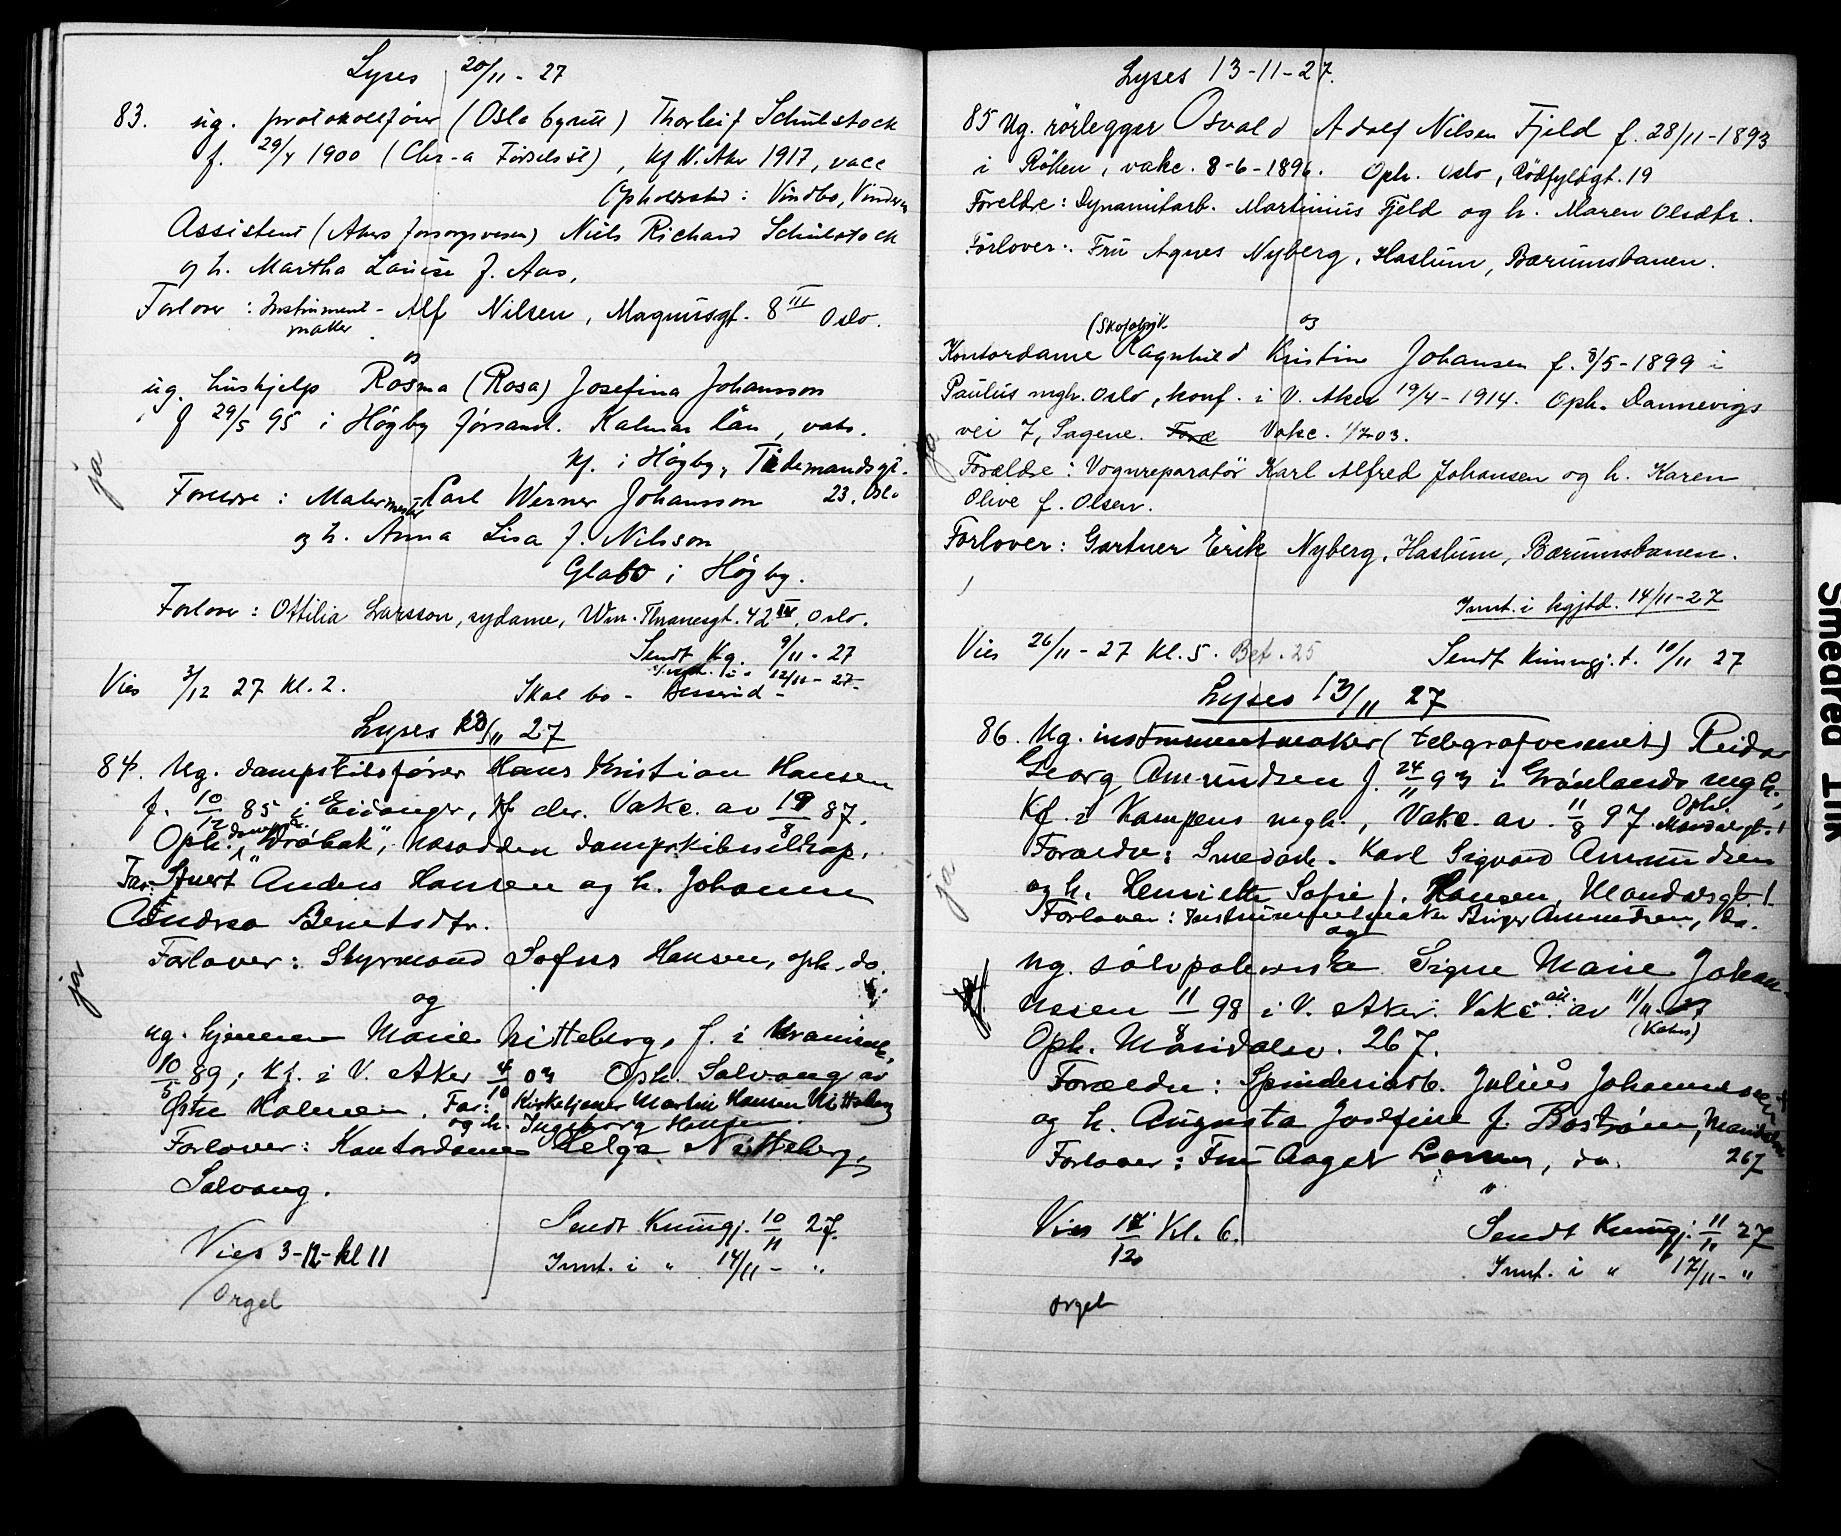 Lyses 20/11 - 27
83. ug. protokollfører (Oslo byrett) Thorleif Schulstock
f. 29/4 1900 (Chr-a Fødselsst), kf V. Aker 1917, vacc
Opholdssted: Vindbo, Vinderen
Assistent (Akers forsorgsvesen) Niels Richard Schulstock
og h. Martha Louise f. Aas,
Forlover: Instrument- Alf Nilsen, Magnusgt. 8 III Oslo.
maker
og
ug. hushjelp Rosma (Rosa) Josefina Johansson
f 29/5 95 i Högby forsaml. Kalmar län, vats.
kf. i Högby, Tidemandsgt.
ja
Foreldre: Malermester Carl Werner Johansson 23, Oslo
og h. Anna Lisa f. Nilsson
Glabo i Högby.
Forlover: Ottilia Larsson, sydame, Wm. Thranesgt. 42 IV, Oslo.
Sendt Kg. 9/11 - 27
12/11 - 27
Vies 3/12 27 kl. 2. Skal bo -
Lyses 13/11 27
84. Ug. dampskibsfører Hans Kristian Hansen
f. 10/12 85 i Eidanger, kf der. Vakc. av 19/8 87.
Oph.: dampsk. "Drøbak", Narodden dampskibsselskap.
Far: Stuert Anders Hansen og h. Johanne
Andrea Berntsdtr.
Forlover: Styrmand Sofus Hansen, oph. do.
ja
og
ug. hjemme Marie Nitteberg, f. i
10/5 89; kf. i V. Aker 4/10 03 Oph. Solvang av
Østre Holmen. Far: Kirketjener Martin Hansen Nitteberg
og h. Ingeborg Hansen.
Forlover: Kontordame Helga Nitteberg,
Solvang.
Sendt Kunngj. 10/11 27.
Vies 3-12- kl 11 Innt. i " 14/11 - "
Orgel
Lyses 13-11-27.
85 Ug. rørlegger Osvald Adolf Nilsen Fjeld f. 28/11-1893
i Røken, vakc. 8-6-1896. Oph. Oslo, Rødfyldgt. 19
Foreldre: Dynamitarb. Martinius Fjeld og h. Maren Olsdtr.
Forlover: Fru Agnes Nyberg, Haslum, Bærumsbanen.
(Skofabrik og
Kontordame Ragnhild Kristine Johansen f. 8/5-1899 i
Paulus mgh. Oslo, konf. i V. Aker 19/4-1914. Oph. Dannevigs
vei 7, Sagene. Foræ Vakc. 1/7-03.
ja
Forældre: Vognreparatør Karl Alfred Johansen og h. Karen
Olive f. Olsen.
Forlover: Gartner Erik Nyberg, Haslum, Bærumsbanen.
Innt. i kgjbl. 14/11-27
Vies 26/11-27 kl. 5. Bet. 25 Sendt kunngj. t. 10/11 27
Lyses 13/11 27
86. Ug. instrumentmaker (telegrafvesenet) Reidar
Georg Amundsen f. 24/11 93 i Grønlands mgh.,
Kf. i Kampens mgh., Vakc. av 11/8 97 Oph. Mandalsgt. 1
Forældre: Smedarb. Karl Sigvard Amundsen
og h. Henriette Sofie f. Hansen, Mandalsgt. 1.
ja
Forlover: Instrumentmaker Birger Amundsen, do.
og
ug. sølvpolererske Signe Marie Johan-
nssen 11/8 98 i V. Aker. Vakc. av 11/11-07
Oph. Maridalsv. 267.
Forældre: Spinderiarb. Julius Johannessen
og h. Augusta Josefine f. Boström, Maridalsv.
Forlover: Fru Aagot Larsen, do. 267
Vies 17/12 Kl. 6. Sendt Kunngj: 11/11 27
Innt. i " 17/11 - "
Orgel
Smedred 11W